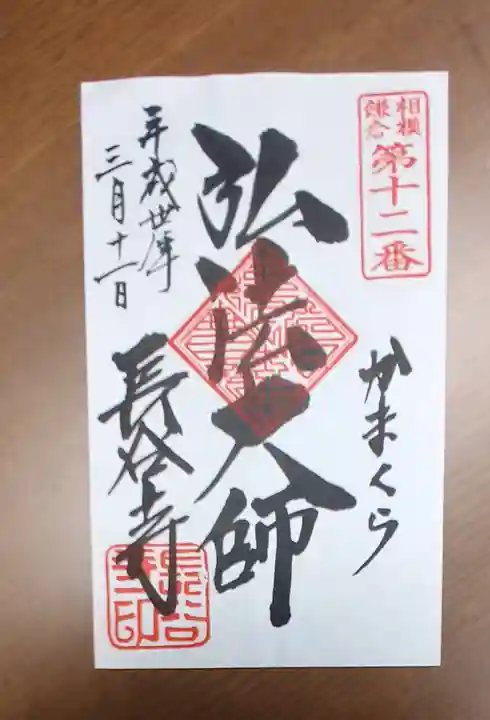 相模
鎌倉
第十二番
かまくら
弘法大師
平成卅年
三月十一日
長谷寺